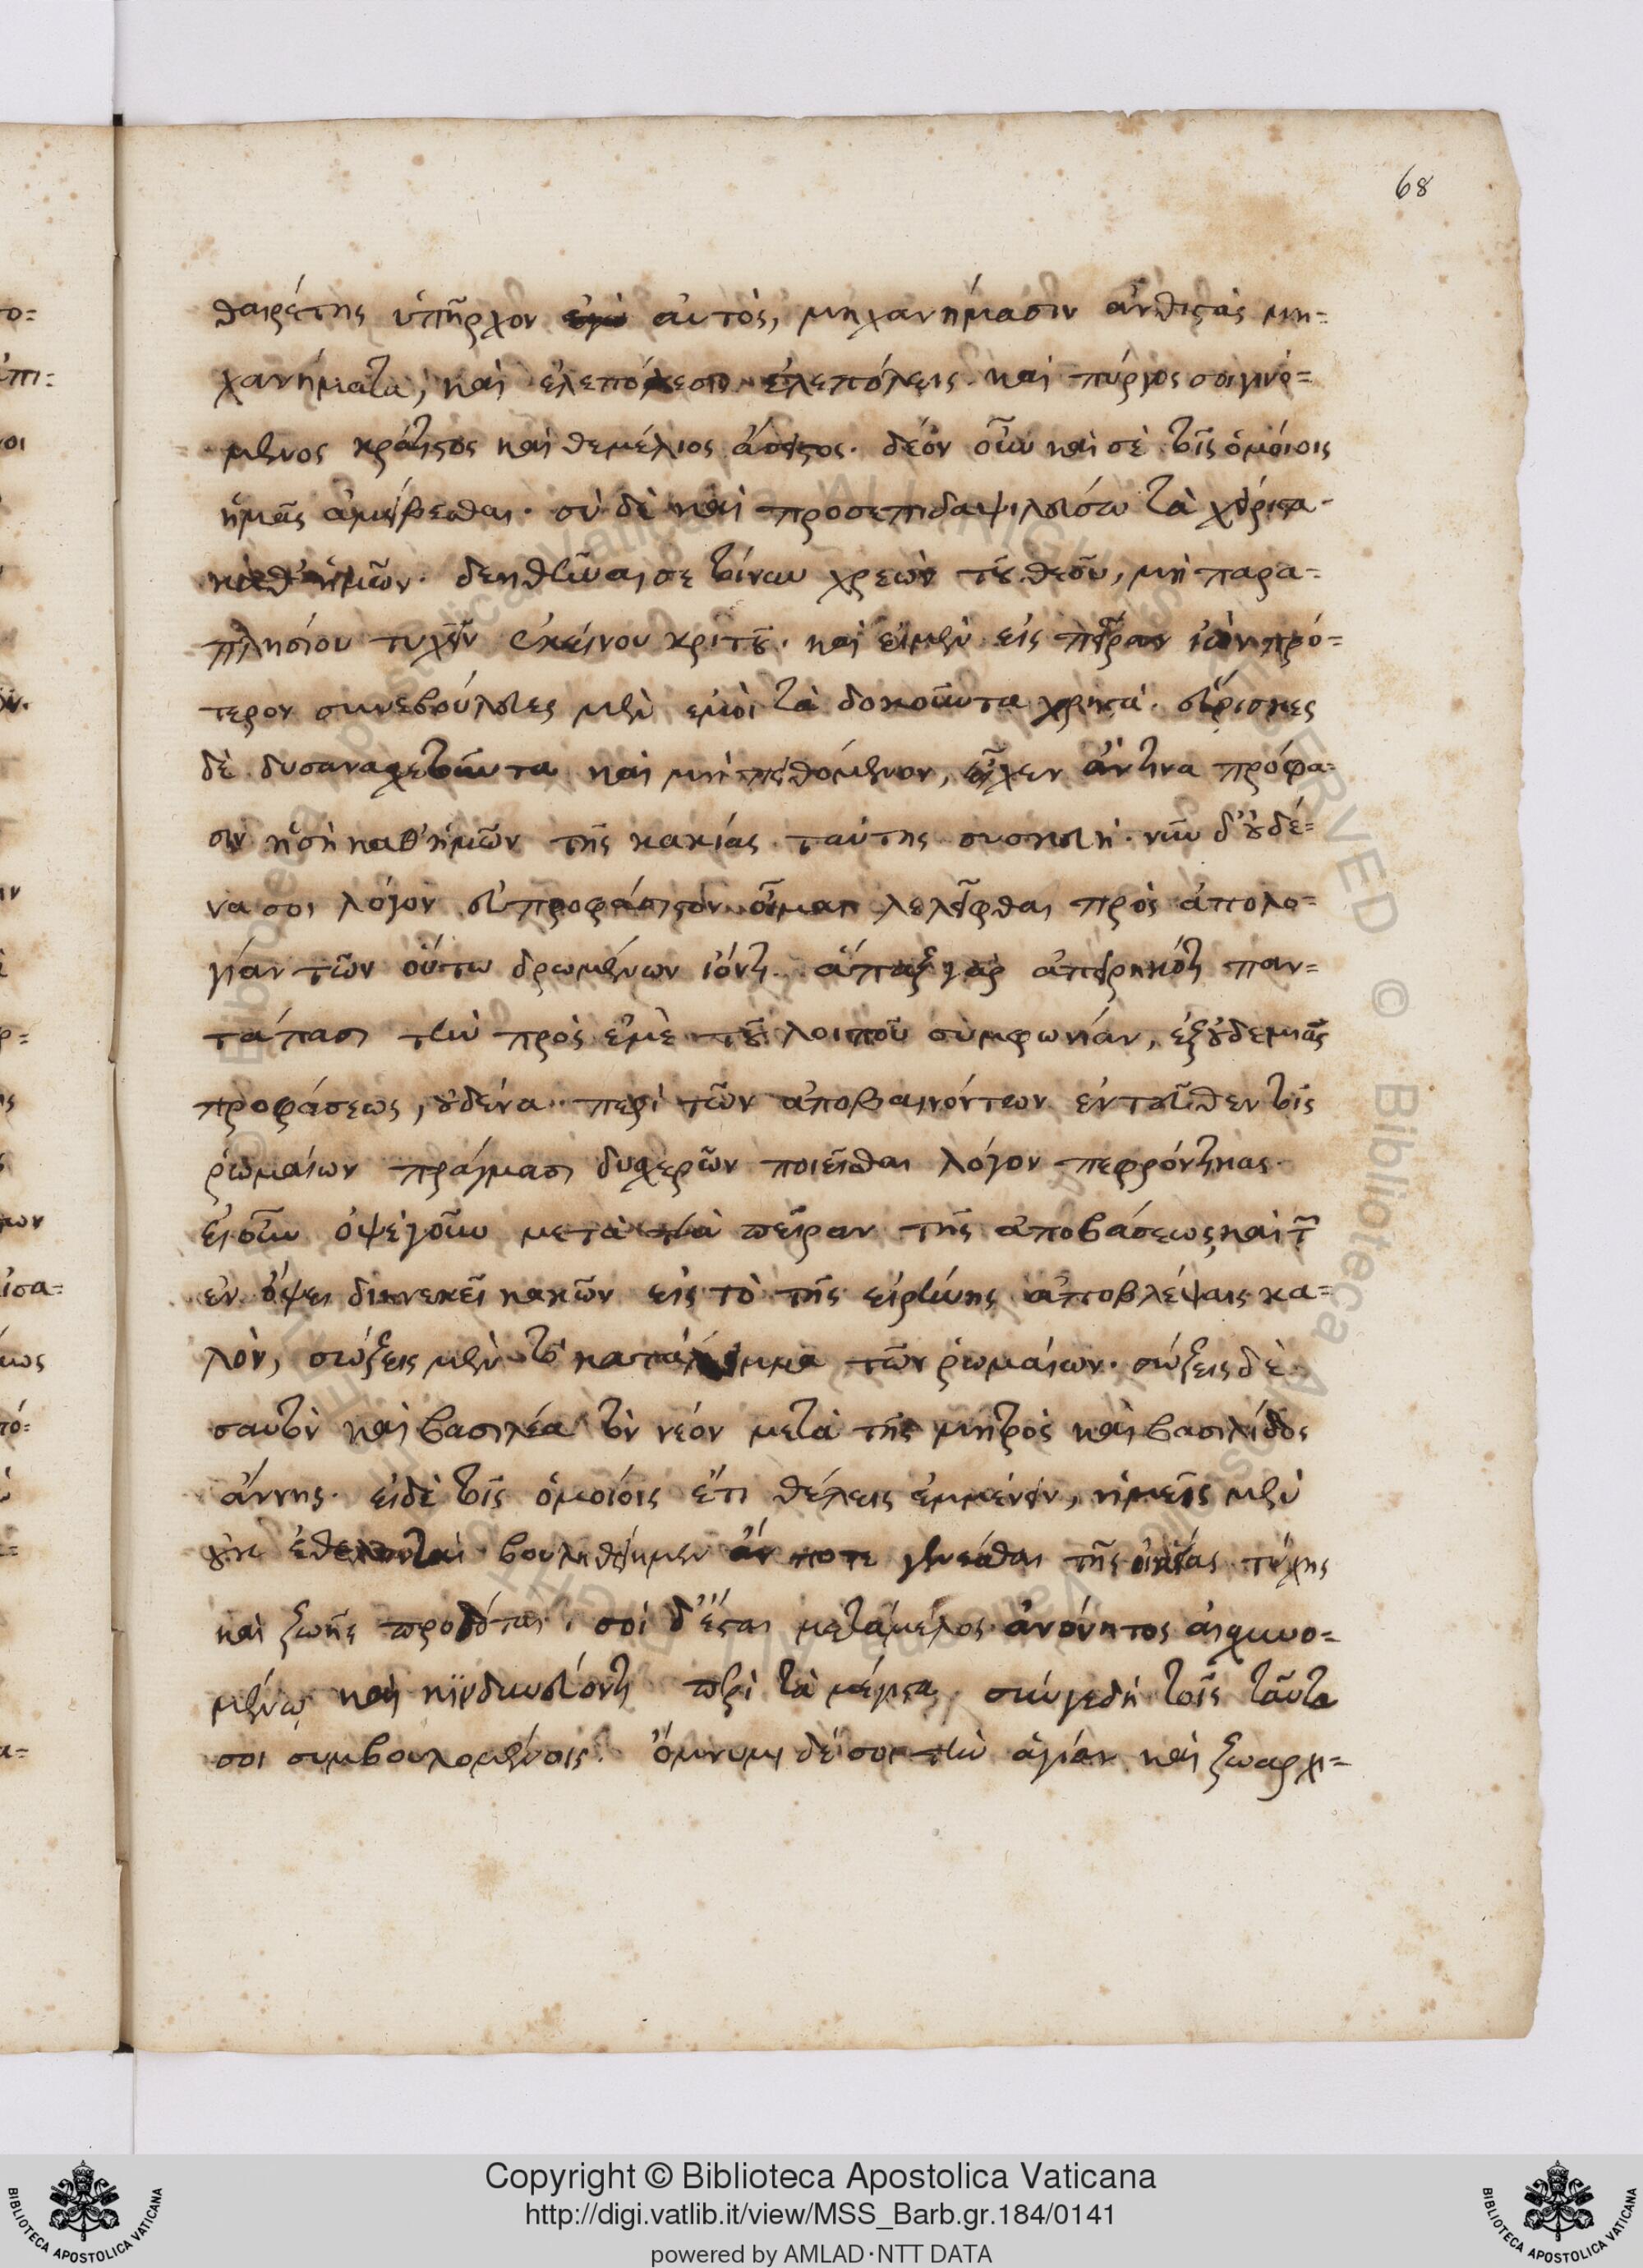 68
θαιρέτης ὑπῆρχον αὐτὸς, μηχανήμασιν ἀνθιστὰς μη=
χανήματα, καὶ ἑλεπόλεσιν ἑλεπόλεις. καὶ πύργος σοι γινό=
μενος κράτιστος καὶ θεμέλιος. δέον οὖν καὶ σὲ τοῖς ὁμοίοις
ἡμᾶς ἀμείβεσθαι. σὺ δὲ καὶ προσεπιδαψιλεύσω τὰ χείριστα
καθ' ἡμῶν. δεηθῆναι σε τοίνυν χρεὼν τοῦ θεοῦ, μὴ παρα=
πλησίου τυχεῖν ἐκείνου κριτοῦ. καὶ εἰ μὲν εἰς πεῖραν ἰὼν πρό=
τερον συνεβούλευες μὲν ἐμοὶ τὰ δοκοῦντα χρηστά. εὕρισκες
δὲ δυσανασχετοῦντα καὶ μὴ πειθόμενον, εἶχεν ἄν τινα πρόφα=
σιν ἡ σὴ καθ' ἡμῶν τῆς κακίας ταύτης συσκευή. νῦν δ' οὐδέ=
να σοι λόγον εὐπροφάσιστον οἶμαι λελεῖφθαι πρὸς ἀπολο=
γίαν τῶν οὕτω δρωμένων ἰόντι. ἅπαξ γὰρ ἀπειρηκότι παν=
τάπασι τὴν πρὸς ἐμὲ τοῦ λοιποῦ συμφωνίαν, ἐξ οὐδεμιᾶς
προφάσεως, οὐδένα περὶ τῶν ἀποβαινόντων ἐντεῦθεν τοῖς
ῥωμαίων πράγμασι δυσχερῶν ποιεῖσθαι λόγον πεφρόντικας.
εἰ οὖν ὀψὲ γοῦν μετὰ τὴν πεῖραν τῆς ἀποβάσεως καὶ τῶν
ἐν ὄψει διηνεκεῖ κακῶν εἰς τὸ τῆς εἰρήνης ἀποβλέψαις κα=
λὸν, σώζεις μὲν τὸ κατάλειμμα τῶν ῥωμαίων. σώζεις δὲ
σαυτὸν καὶ βασιλέα τὸν νέον μετὰ τῆς μητρὸς καὶ βασιλίδος
ἄννης. εἰ δὲ τοῖς ὁμοίοις ἔτι θέλεις ἐμμένειν, ἡμεῖς μὲν
οὐκ ἐθελονταὶ βουληθείημεν ἄν ποτε γενέσθαι τῆς οἰκείας τύχης
καὶ ζωῆς προδόται. σοὶ δ' ἔσται μετάμελος ἀνόνητος αἰσχυνο=
μένῳ καὶ κινδυνεύοντι περὶ τὰ μέγιστα, σύν γε δὴ τοῖς ταῦτα
σοι συμβουλομένοις. ὄμνυμι δέ σοι τὴν ἁγίαν καὶ ζωαρχι=
Copyright © Biblioteca Apostolica Vaticana
http://digi.vatlib.it/view/MSS_Barb.gr.184/0141
powered by AMLAD·NTT DATA
BIBLIOTECA APOSTOLICA VATICANA
BIBLIOTECA APOSTOLICA VATICANA